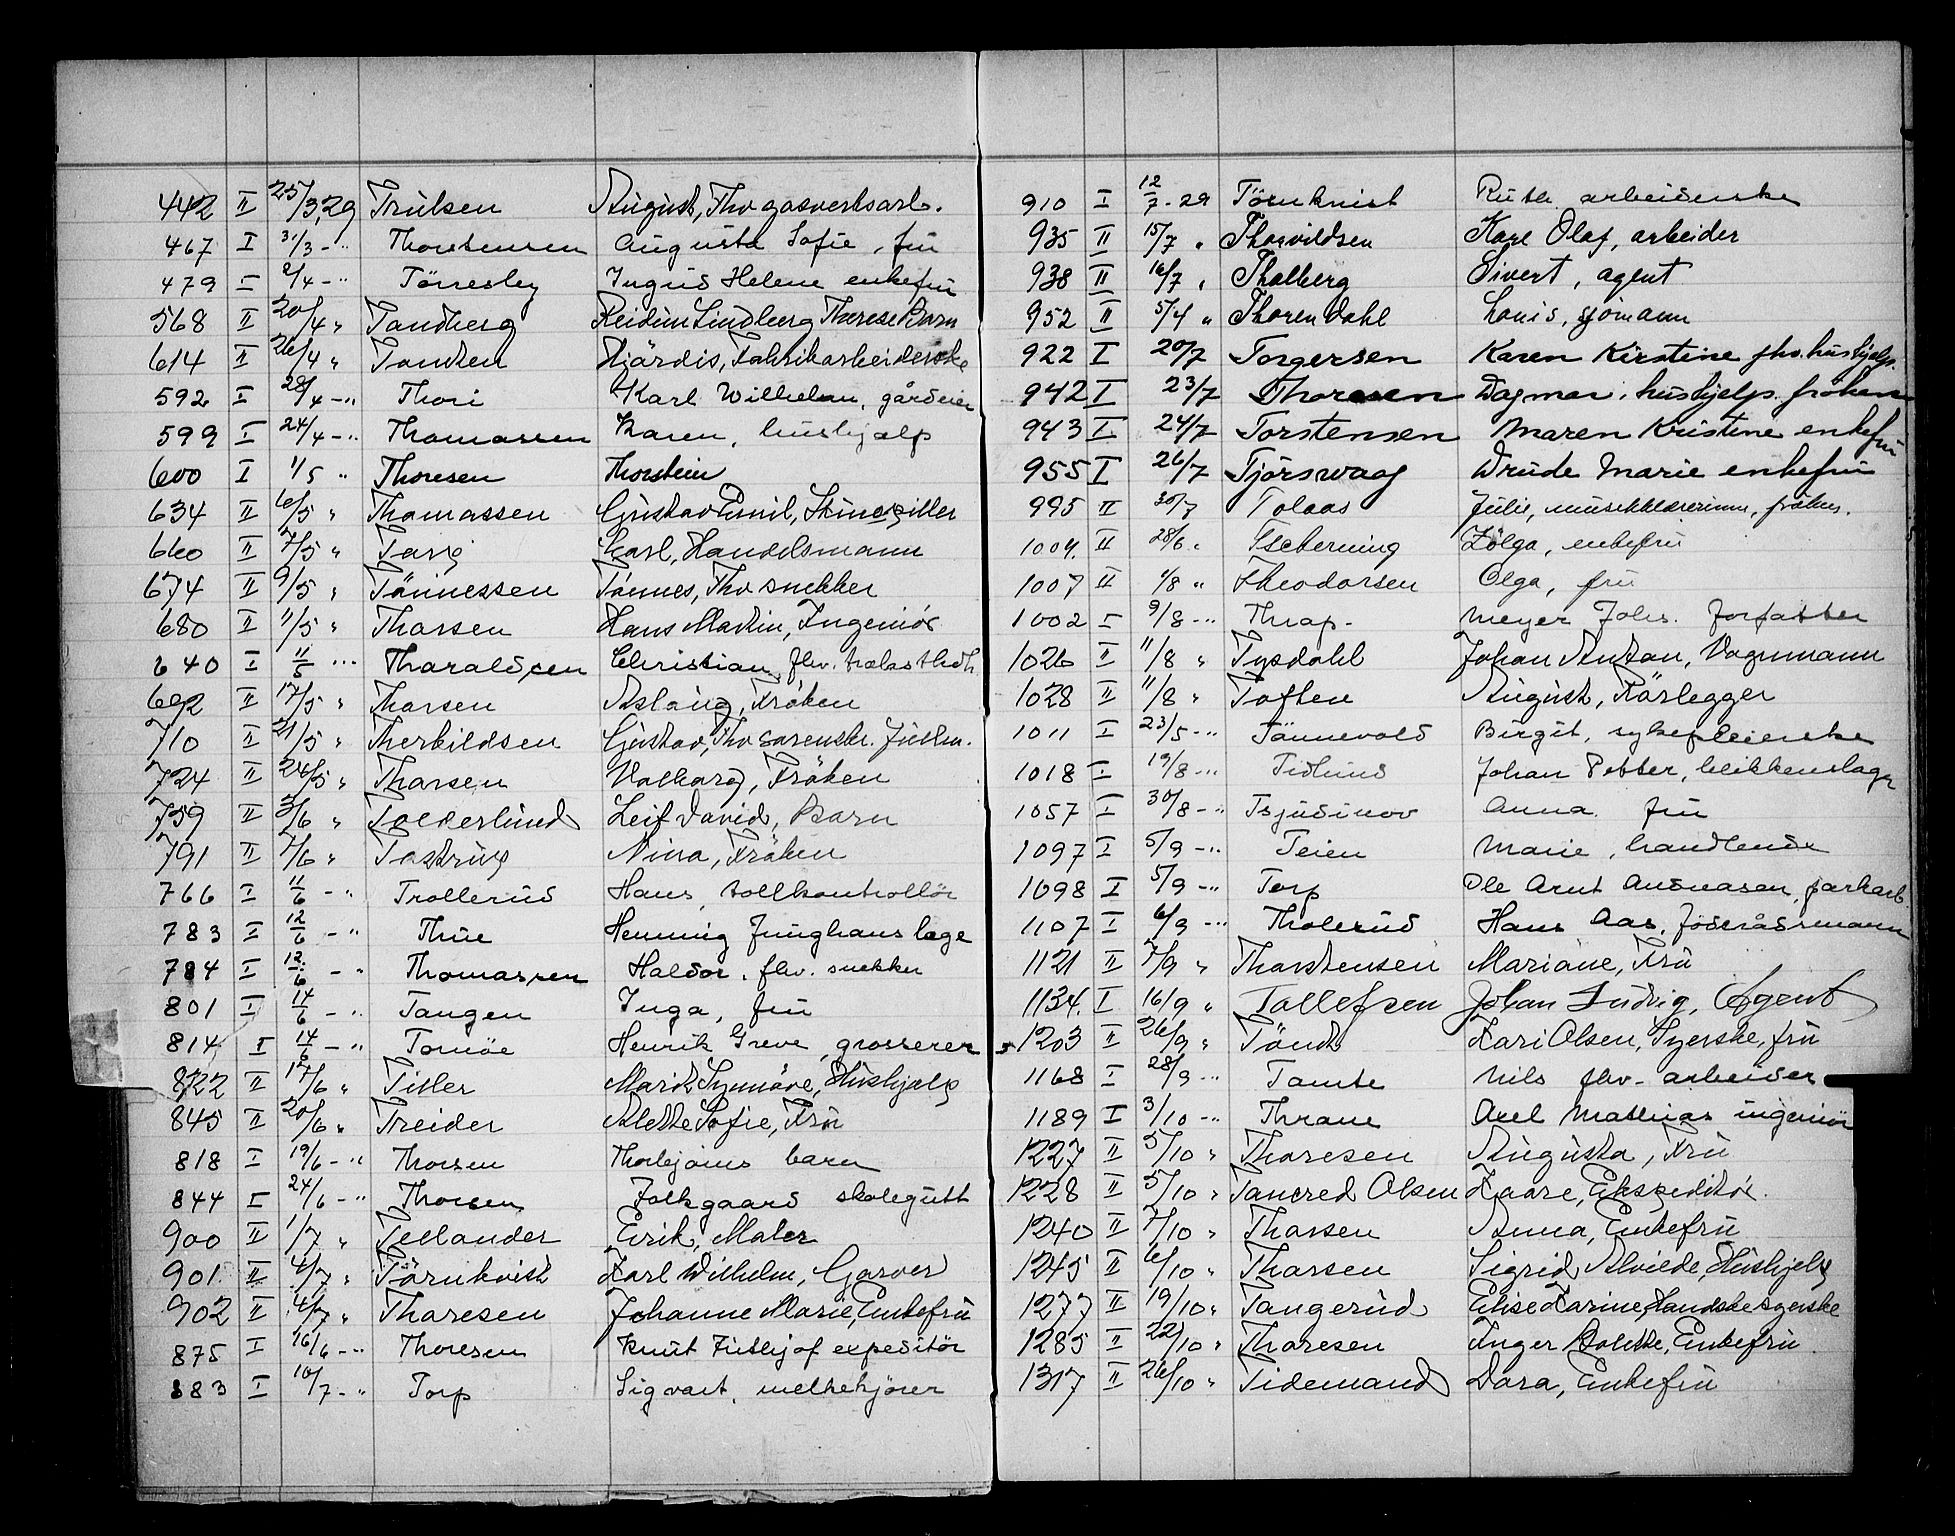 442 II 25/3,29 Trulsen August, Fhv gasverksarb.
467 I 31/3 -"- Thorstensen Augusta Sofie, fru
479 I 2/4 -"- Tørresby Ingrid Helene enkefru
568 II 20/4 " Tandberg Reidun Lindberg Therese Barn
614 II 26/4 " Tandten Hjärdis, Fabrikarbeiderske
592 I 28/4 -"- Thori Karl Wilhelm, gårdeier
599 I 24/4 -"- Thomassen Karen, hushjelp
600 I 1/5 " Thoresen Thorstein
634 II 6/5 " Thomassen Gustav Emil,
660 II 7/5 " Karl, Handelsmann
674 II 9/5 " Tönnessen Tönnes, Fhv snekker
680 II 11/5 " Thorsen Hans Martin, Ingeniör
640 I 11/5 -"- Tharaldsen Christian, fhv. trælasthdl.
692 II 17/5 " Thorsen Aslaug, Fröken
710 II 21/5 " Therkildsen Gustav, Fhv sorenskr. Justm.
724 II 24/5 " Thorsen Valborg, Fröken
759 II 3/6 " Toederlund Leif David, Barn
791 II 7/6 " Tostrup Nina, Fröken
766 I 11/6 -"- Trollerud Hans, tollkontrollör
783 I 12/6 -"- Thue Henning Junghans læge
784 I 12/6 -"- Thomassen Haldor, fhv. snekker
801 I 14/6 -"- Tangen Inga, fru
814 I 14/6 -"- Tornöe Henrik Greve, grosserer
822 II 17/6 " Titler Marit Synnöve, Hushjelp
845 II 20/6 " Treider Alette Sofie, Fru
818 I 19/6 -"- Thorsen Thorbjørns barn
844 I 24/6 -"- Thorsen Folkgaard skolegutt
900 II 1/7 " Teelander Erik, Maler
901 II 4/7 " Törnkvist Karl Wilhelm, Garver
902 II 4/7 " Thoresen Johanne Marie, Enkefru
875 I 16/6 -"- Thoresen Knut Fritjof expeditör
883 I 10/7 -"- Torp Sigvart, melkekjörer
910 I 12/7 - 29 Törnkvist Ruth arbeiderske
935 II 15/7 " Thorvildsen Kare Olaf, arbeider
938 II 16/7 " Tholberg Sivert, agent
952 II 5/4 " Thoren Dahl Louis, sjömann
922 I 20/7 Torgersen Karen Kirstine fhv. hushjelp.
942 I 23/7 Thoresen Dagmar, hushjelp. fröken
943 I 24/7 Torstensen Maren Kristine enkefru
955 I 26/7 Tjörswaag Drude Marie enkefru
995 II 30/7 Tolaas Julie, musikklærerinne, fröken.
1004. II 28/6 " Tscherning Helga, enkefru
1007 II 1/8 " Theodorsen Olga, fru
1002 I 9/8 -"- Thrap- Meyer Johs. Forfatter
1026 II 11/8 " Tysdahl Johan Anton, Vognmann
1028 II 11/8 " Toften August, Rörlegger
1011 I 23/5 -"- Tönnevold Birgit, sykepleierske
1018 I 19/8 -"- Tidlund Johan Petter, blikkenslager
1057 I 30/8 -"- Tsjudinov Anna fru
1097 I 5/9 -"- Teien Marie, handlende
1098 I 5/9 -"- Torp Ole Arnt Andreasen, parkarb.
1107 I 6/9 -"- Tholerud Hans Aas, födsrådsmann
1121 II 7/9 " Thorstensen Mariane, Fru
1134. I 16/9 " Tollefsen Johan Ludvig, Agent
1203 II 26/9 " Töndt Kari Olsen, Syerske, fru
1168 I 28/9 -"- Tomte Nils fhv. arbeider
1189 I 3/10 -"- Thrane Axel Mathias ingeniör
1227 II 5/10 " Thoresen Augusta, Fru
1228 II 5/10 " Tancred Olsen Kaare, Ekspeditör.
1240 II 7/10 " Thorsen Anna, Enkefru
1245 II 6/10 " Thorsen Sigrid Alvilde, Hushjelp
1277 II 19/10 " Tangerud Elise Karine, Handskesyerske
1285 II 22/10 " Thoresen Inger Bolette, Enkefru
1317 II 26/10 " Tidemand Dora, Enkefru